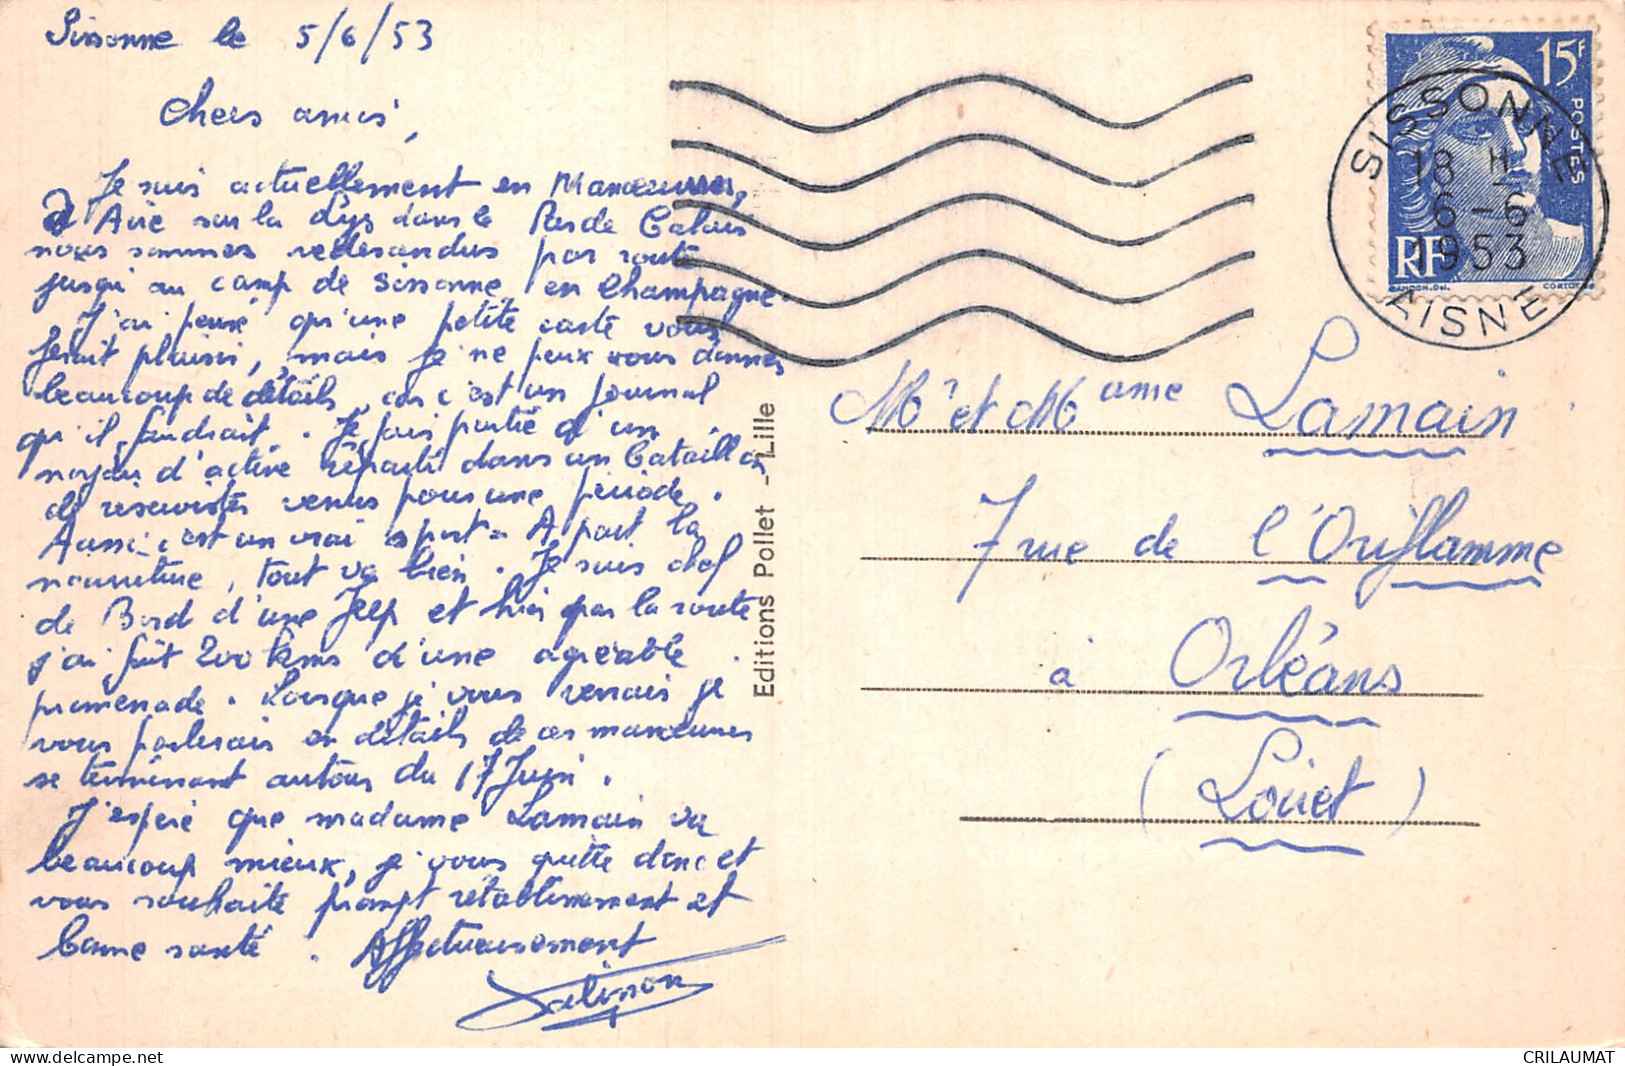 Sissonne le 5/6/53
Chers amis,
Je suis actuellement en Manœuvres,
d'Aire sur la Lys dans le Pas de Calais
nous sommes redescendus par route
jusqu'au camp de Sissonne en Champagne.
J'ai pensé qu'une petite carte vous
ferait plaisir, mais je ne peux vous donner
beaucoup de détails, car c'est un journal
qu'il faudrait. Je fais partie d'un
noyau d'active réparti dans un Bataillon
de réservistes venus pour une période.
Aussi c'est un vrai sport. A part la
nourriture, tout va bien. Je suis chef
de Bord d'une Jeep et hier par la route
j'ai fait 200 kms d'une agréable
promenade. Lorsque je vous verrais je
vous parlerais en détails de ces manœuvres
se terminant autour du 17 Juin.
J'espère que madame Lamain va
beaucoup mieux, je vous quitte donc et
vous souhaite prompt rétablissement et
bonne santé. Affectueusement
Editions Pollet - Lille
15F
POSTES
RF
GANDON.Del. CORTOT
SISSONNE
18 H
6-6
1953
AISNE
Mr et Mame Lamain
7 rue de l'Oriflamme
à Orléans
(Loiret)
CRILAUMAT
delcampe.net